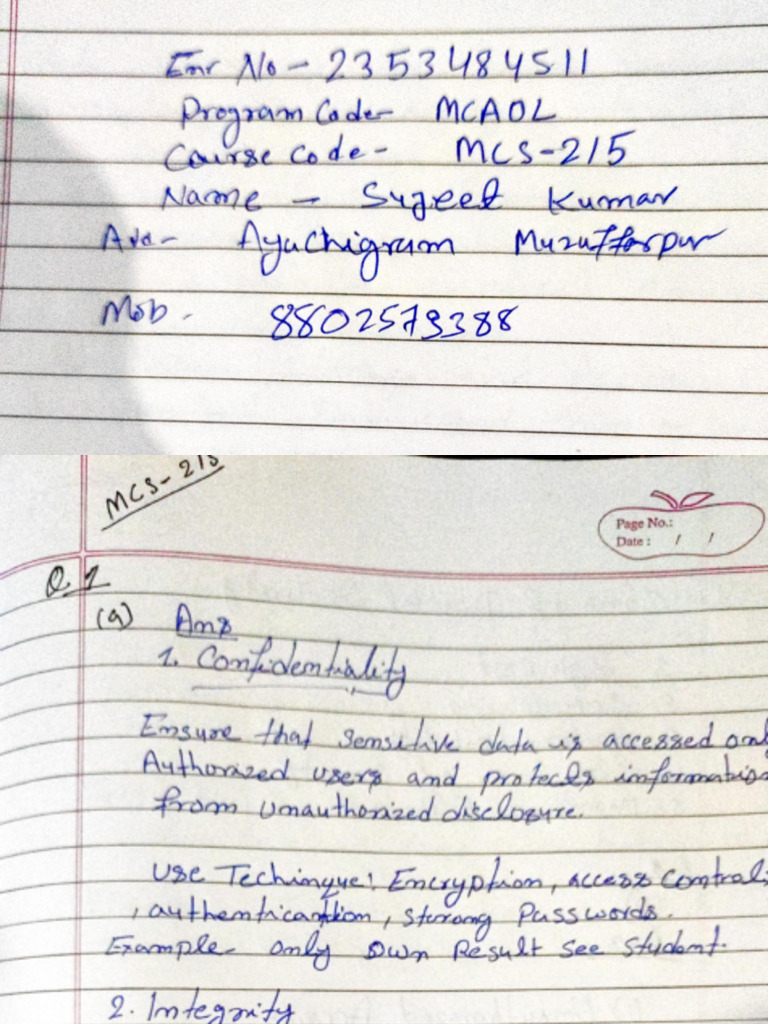 Enr No - 2353484511
Program Code- MCAOL
Course Code - MCS-215
Name - Sujeet Kumar
Ayachigram Muzuffarpur
Mob - 8802579388
MCS-215
Page No.:
Date : / /
Q.1
(a) Ans
1. Confidentiality
Ensure that sensitive data is accessed only
Authorized users and protects information
from unauthorized disclosure.
Use Techinque: Encryption, access control
, authentication, strong Passwords.
Example- only Own Result See Student.
2. Integrity